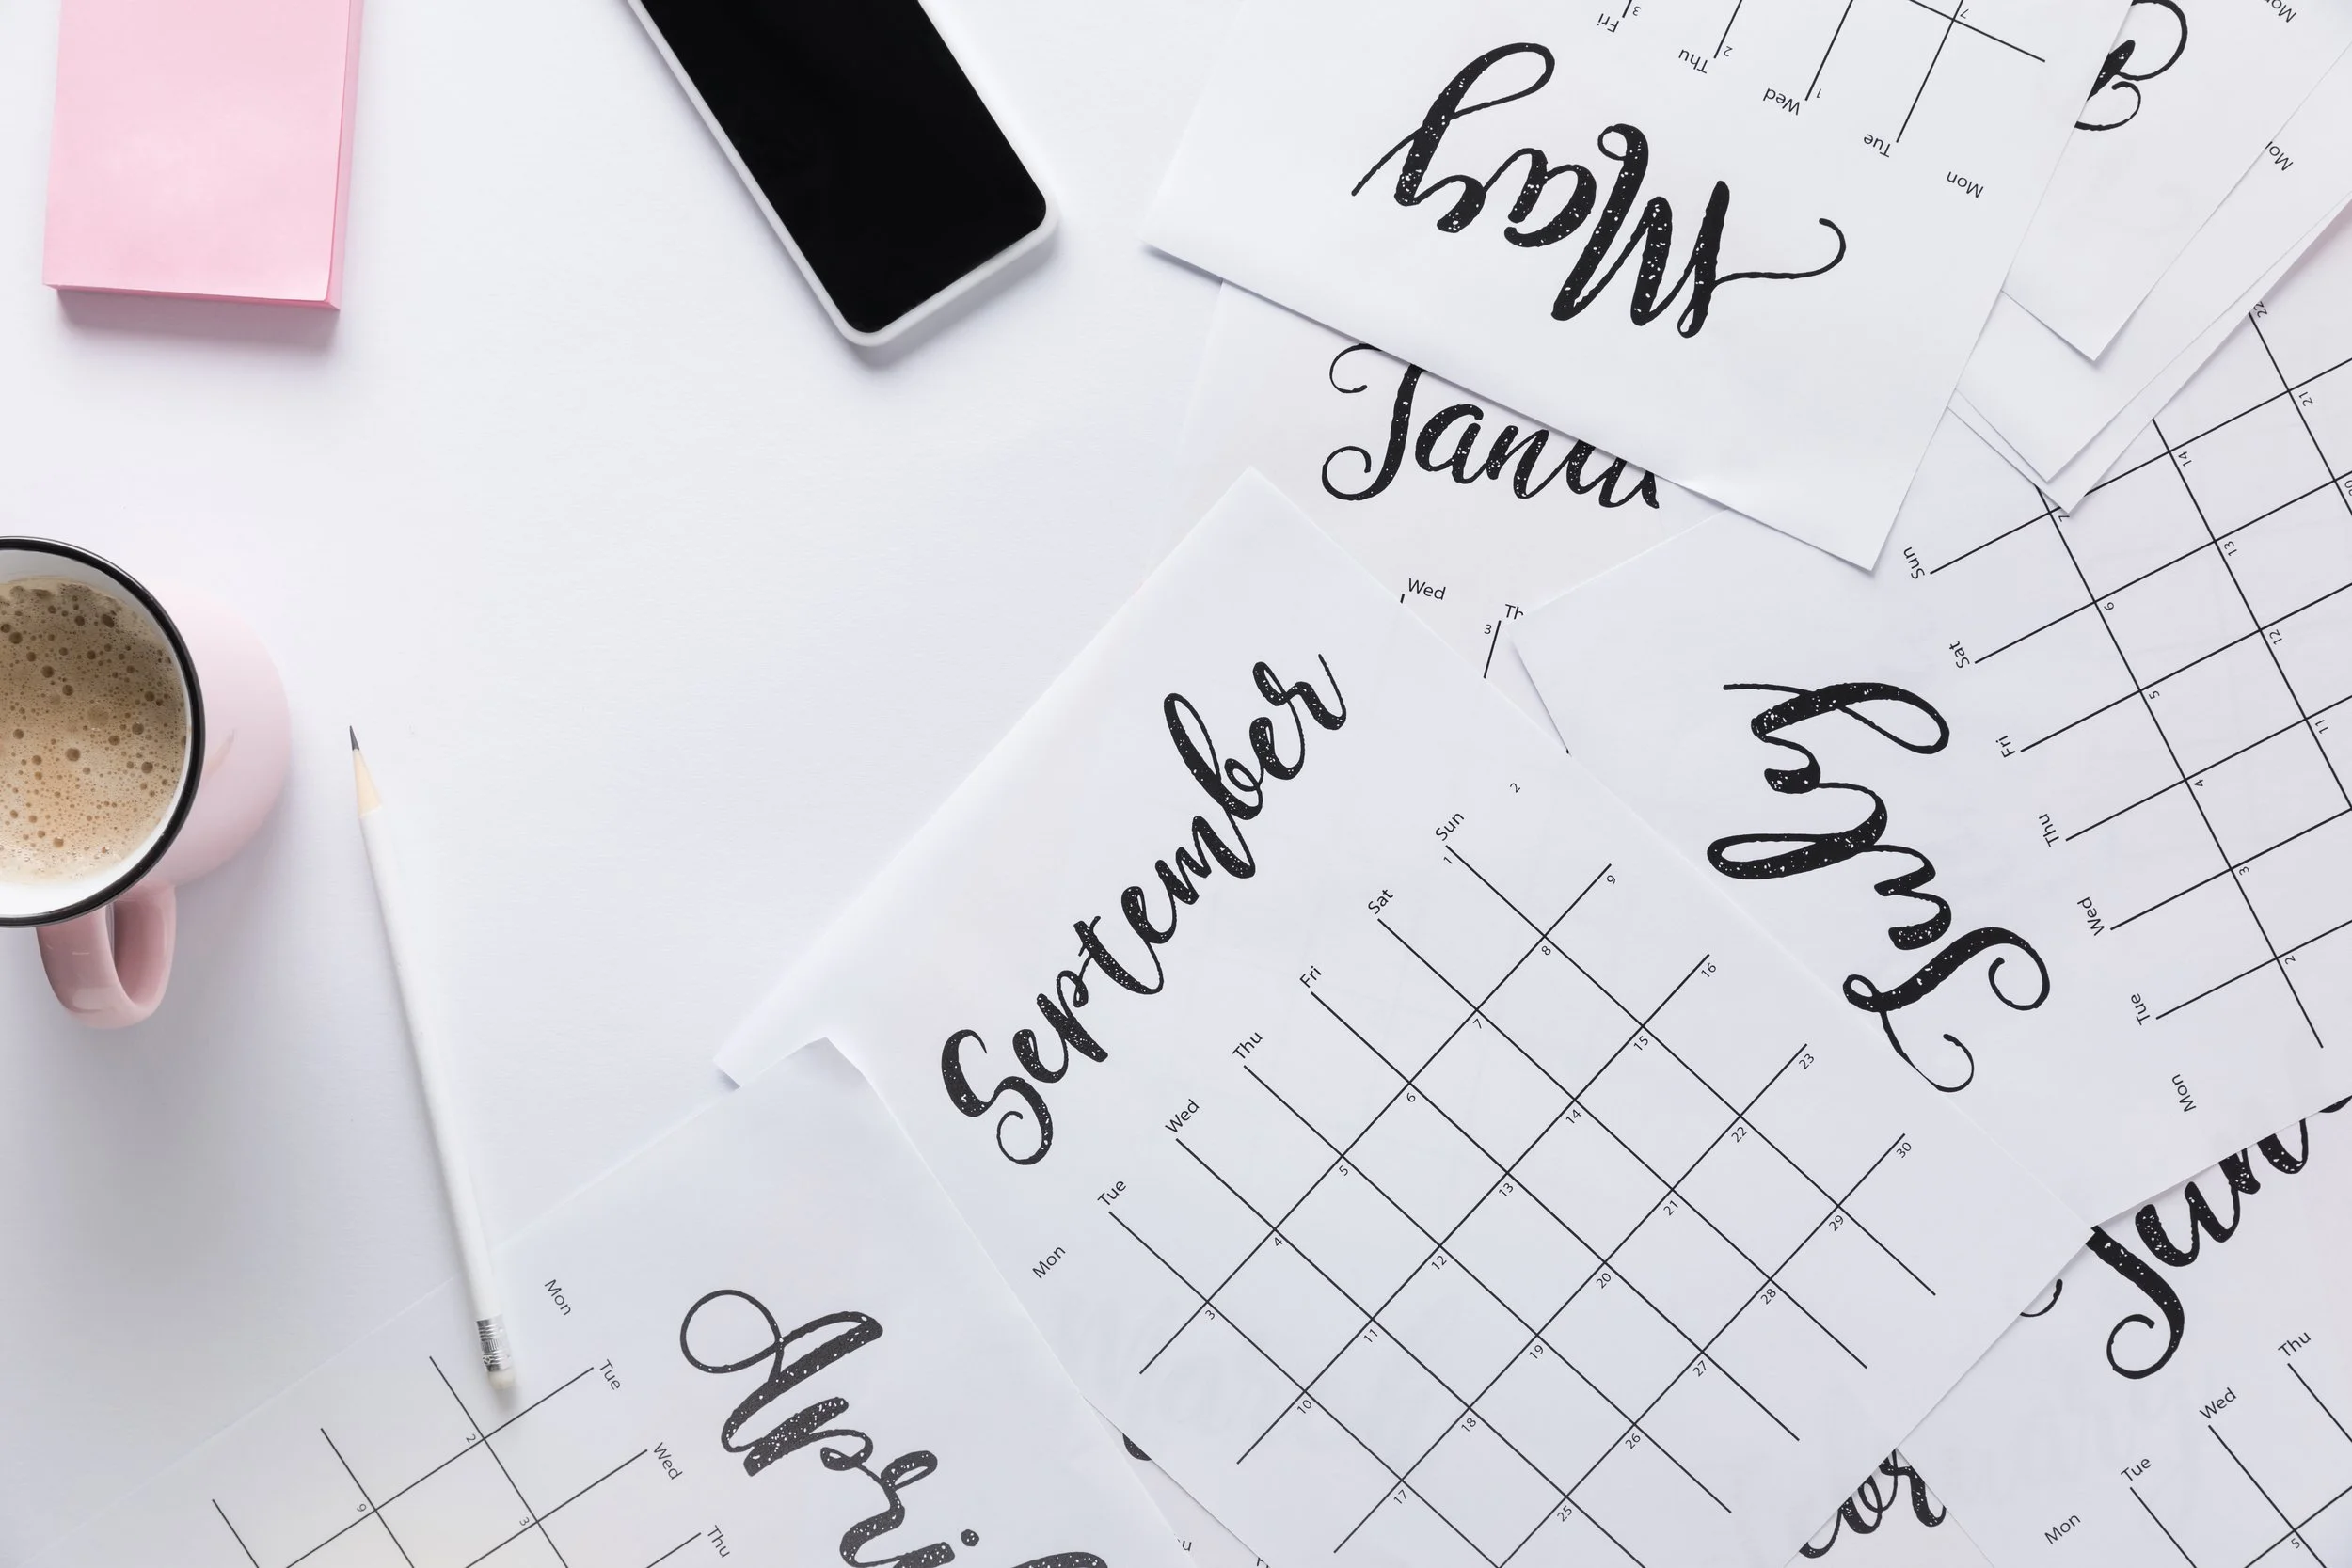 May
Mon Tue Wed Thu Fri
1 2 3
7
Mo
Mo
Janu
Wed Th
3
September
Mon Tue Wed Thu Fri Sat Sun
1 2
3 4 5 6 7 8 9
10 11 12 13 14 15 16
17 18 19 20 21 22 23
25 26 27 28 29 30
July
Mon Tue Wed Thu Fri Sat Sun
2 3 4 5 6 7
11 12 13 14
20 21
22
April
Mon Tue Wed Thu
2 3
9
Jun
Mon Tue Wed Thu
5
er